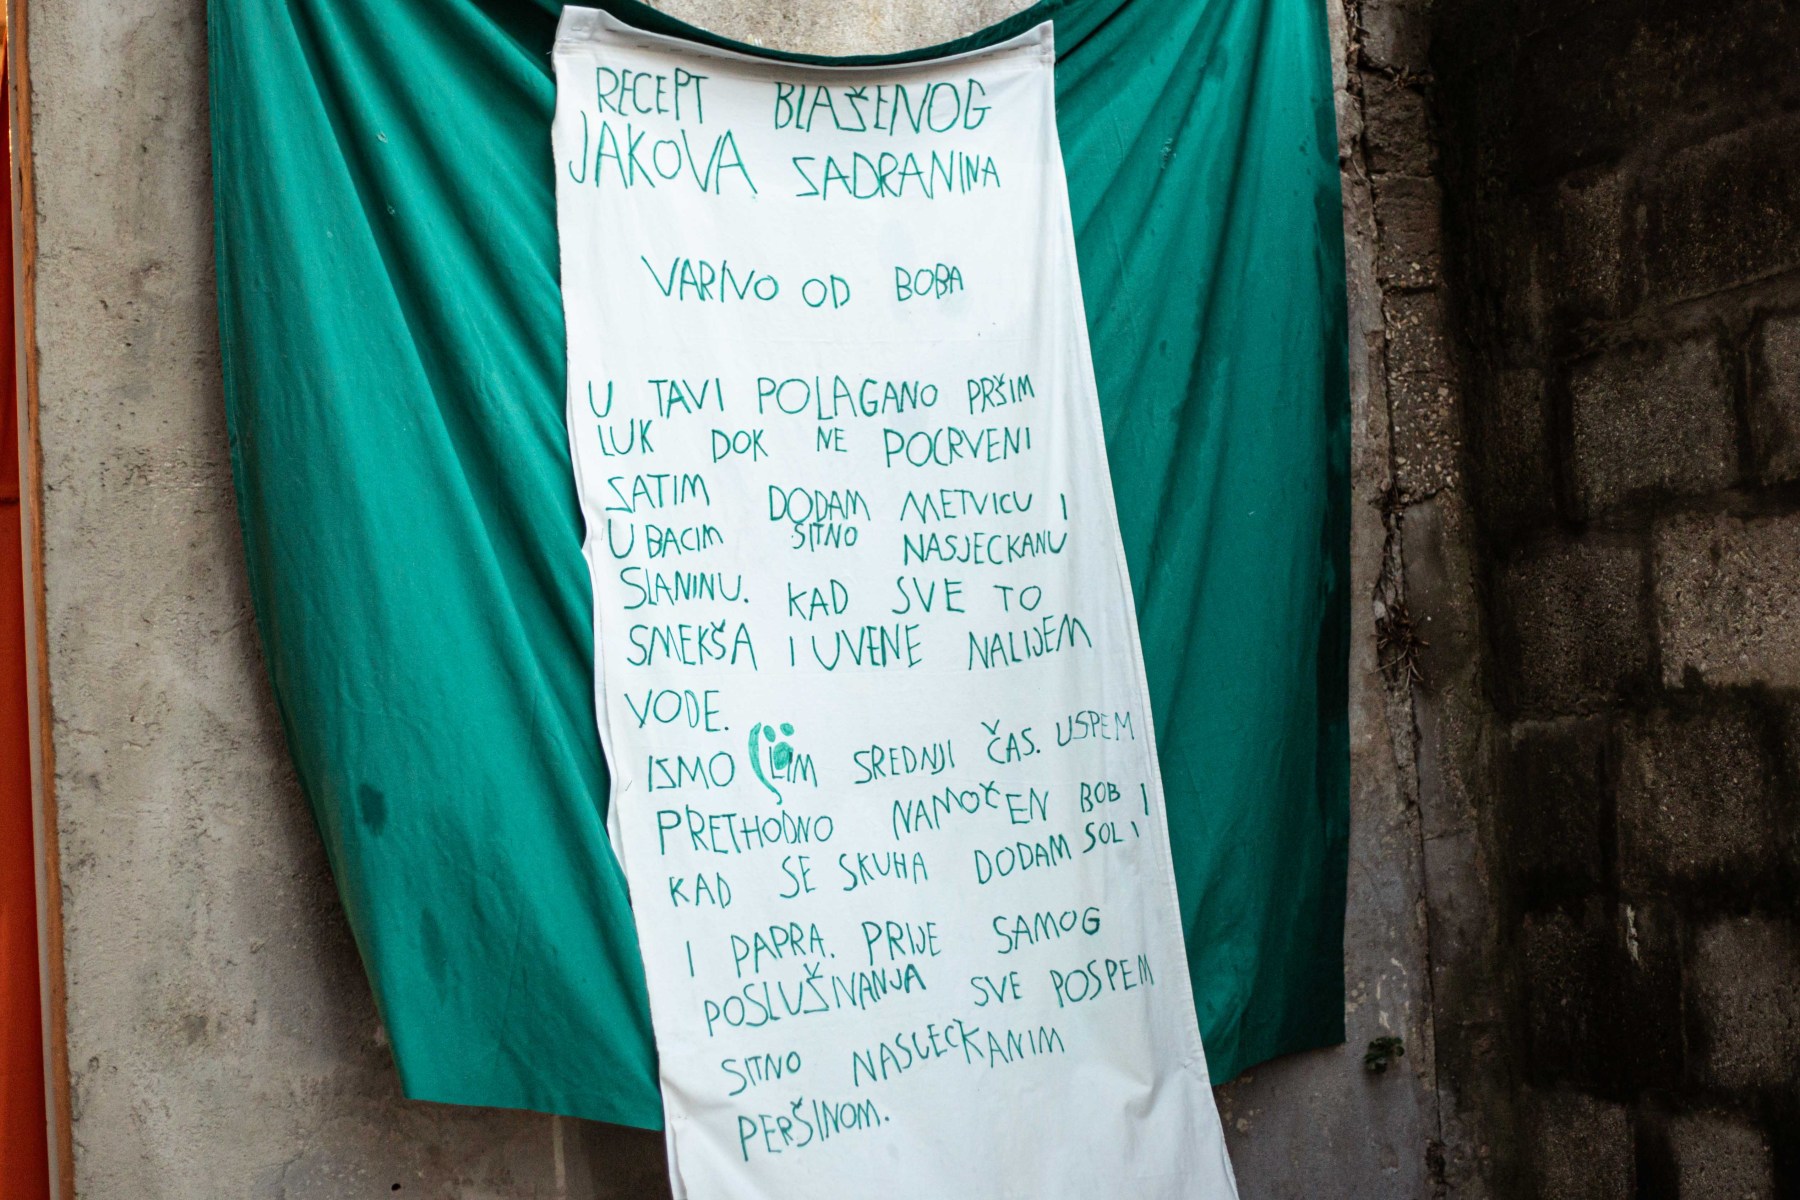 RECEPT BLAŽENOG
JAKOVA ZADRANINA
VARIVO OD BOBA
U TAVI POLAGANO PRŠIM
LUK DOK NE POCRVENI
ZATIM DODAM METVICU I
UBACIM SITNO NASJECKANU
SLANINU. KAD SVE TO
SMEKŠA I UVENE NALIJEM
VODE.
SREDNJI ČAS. USPEM
PRETHODNO NAMOČEN BOB I
KAD SE SKUHA DODAM SOL I
I PAPRA. PRIJE SAMOG
POSLUŽIVANJA SVE POSPEM
SITNO NASJECKANIM
PERŠINOM.